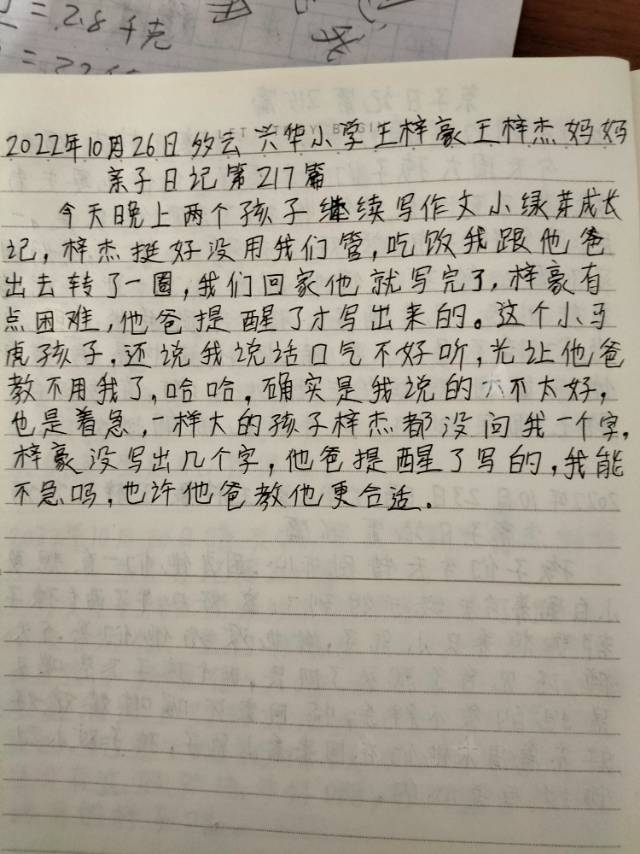 =2.8千克
2022年10月26日多云 兴华小学王梓豪王梓杰妈妈
亲子日记第217篇
今天晚上两个孩子继续写作文小绿芽成长
记，梓杰挺好没用我们管，吃饭我跟他爸
出去转了一圈，我们回家他就写完了，梓豪有
点困难，他爸提醒了才写出来的。这个小马
虎孩子，还说我说话口气不好听，光让他爸
教不用我了，哈哈，确实是我说的不太好，
也是着急，一样大的孩子梓杰都没问我一个字，
梓豪没写出几个字，他爸提醒了写的，我能
不急吗，也许他爸教他更合适．